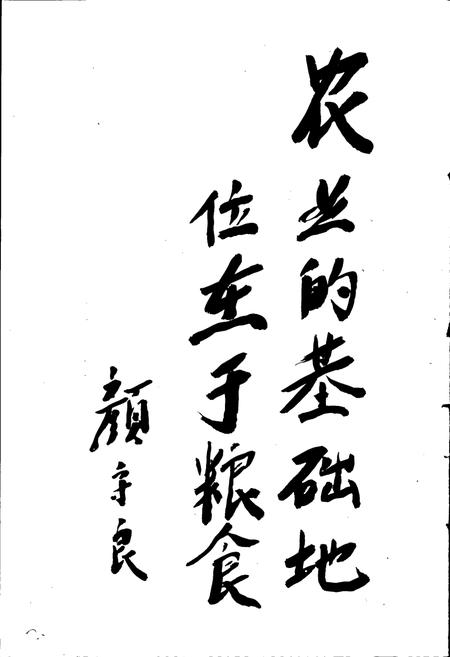 农业的基础地
位在于粮食
顏守良